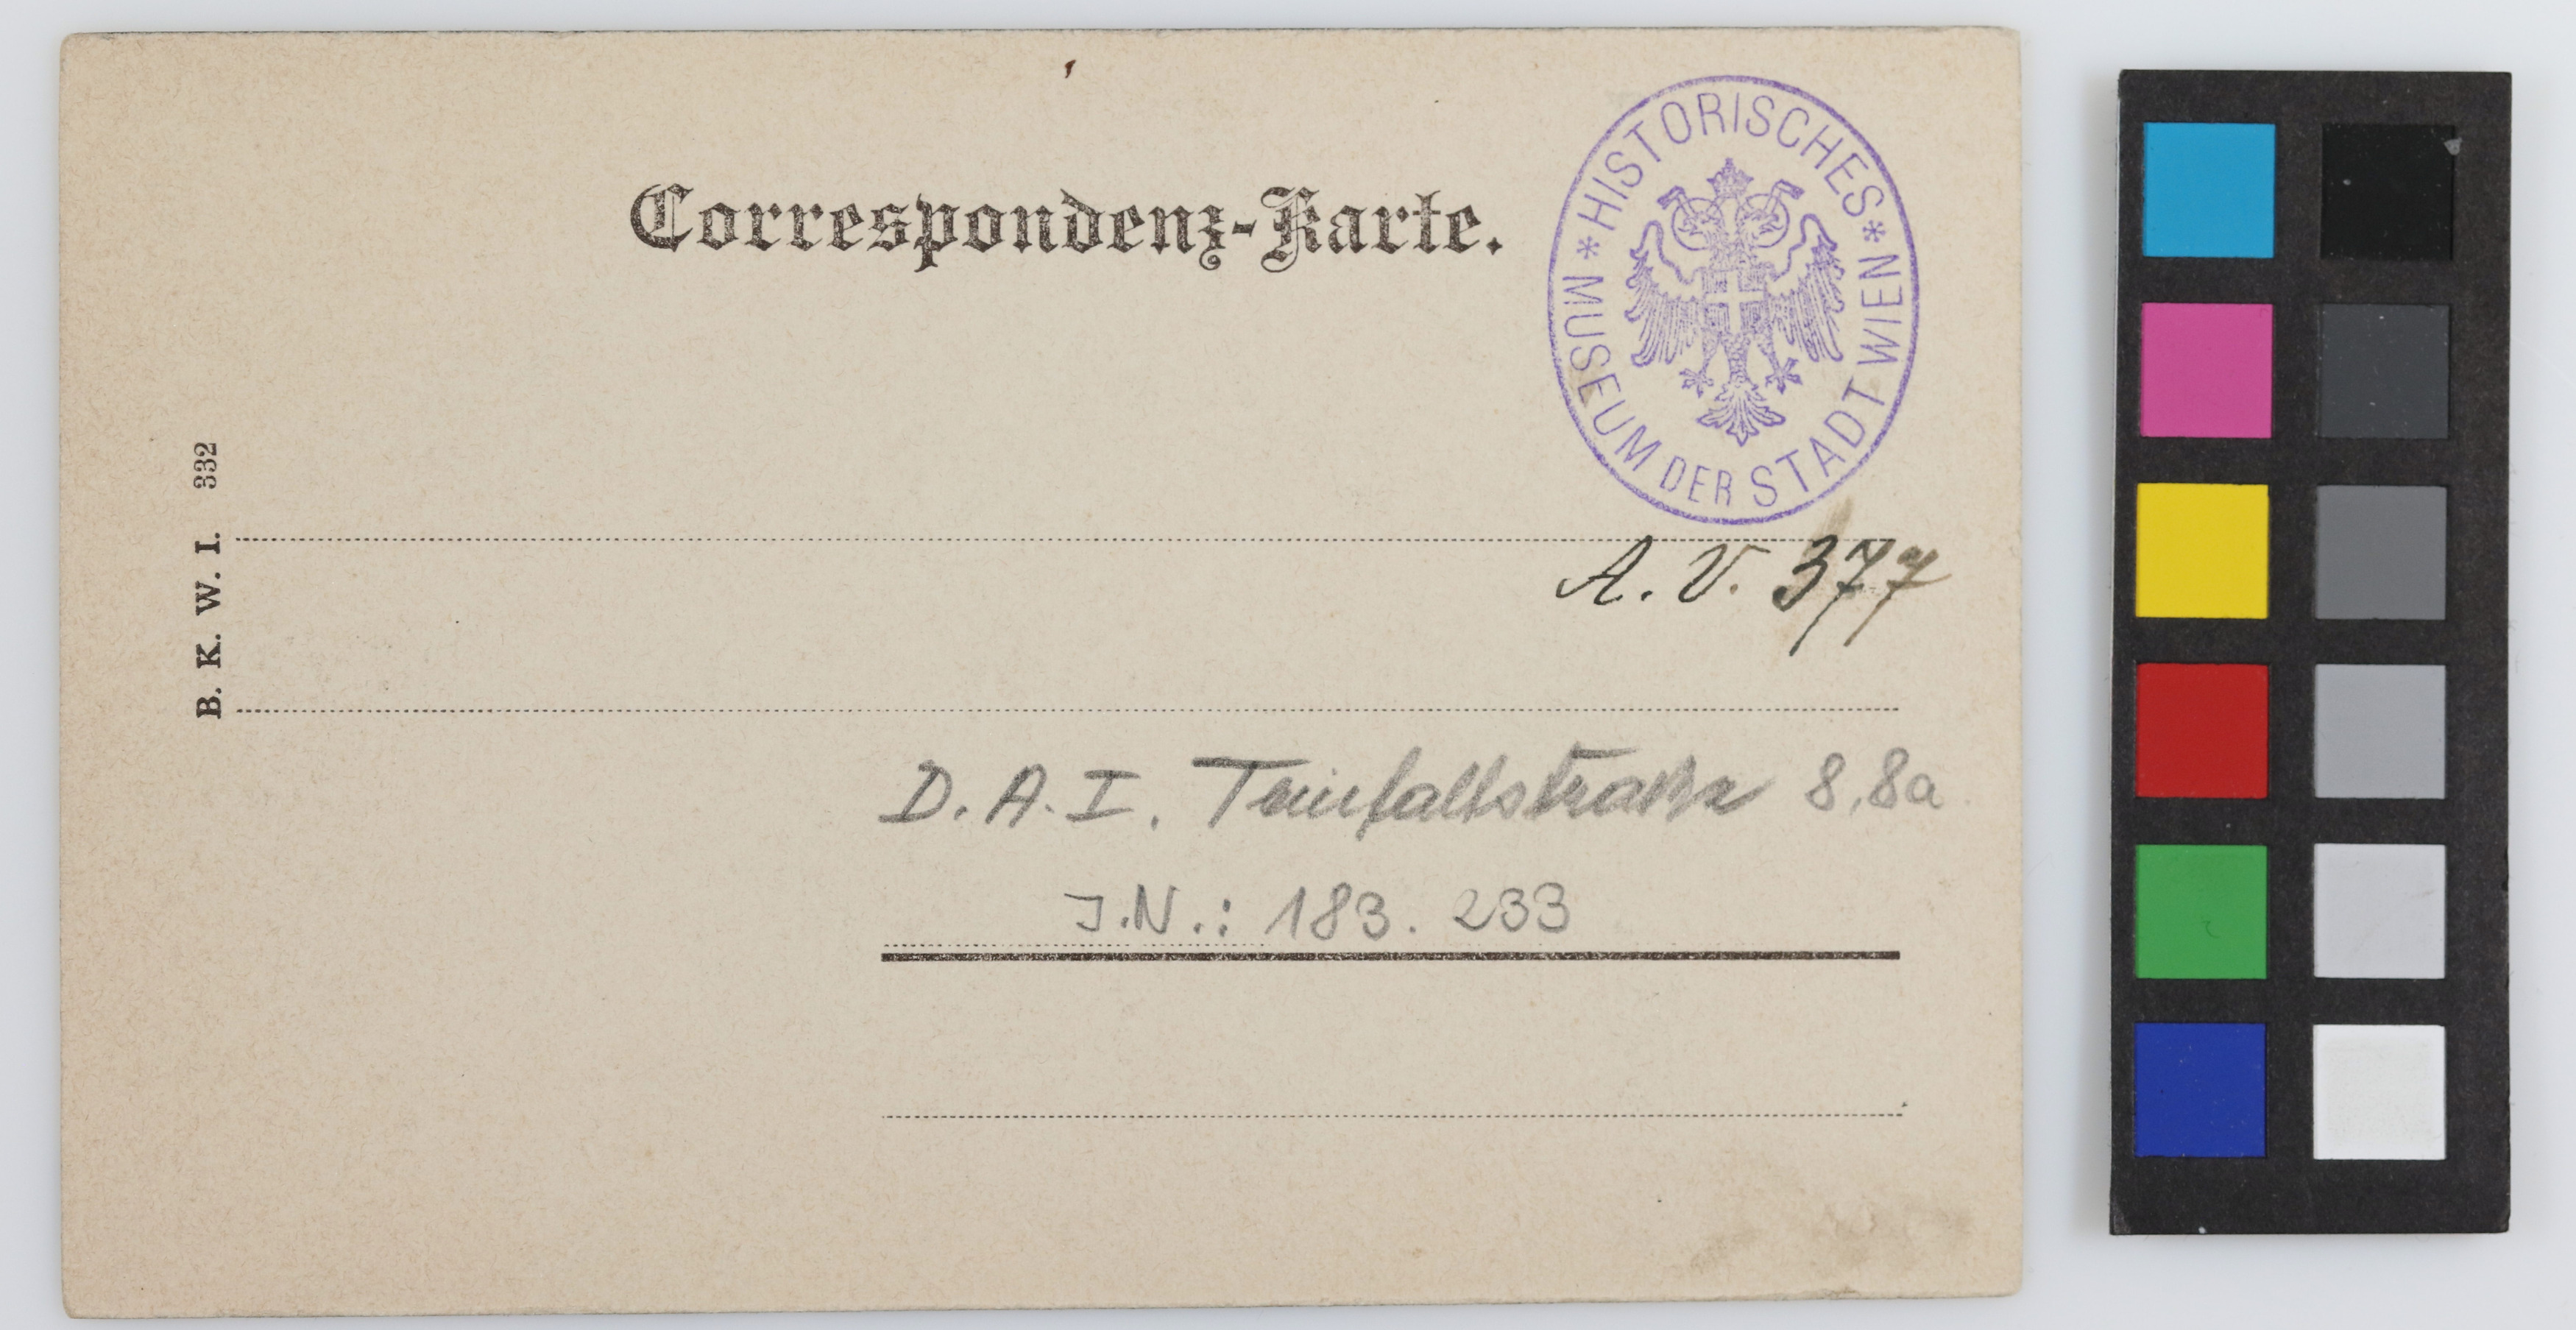 Correspondenz-Karte.
* HISTORISCHES *
MUSEUM DER STADT WIEN
B. K. W. I. 332
A. V. 377
D. A. I. Teinfaltstraße 8, 8a
J.N.: 183. 233